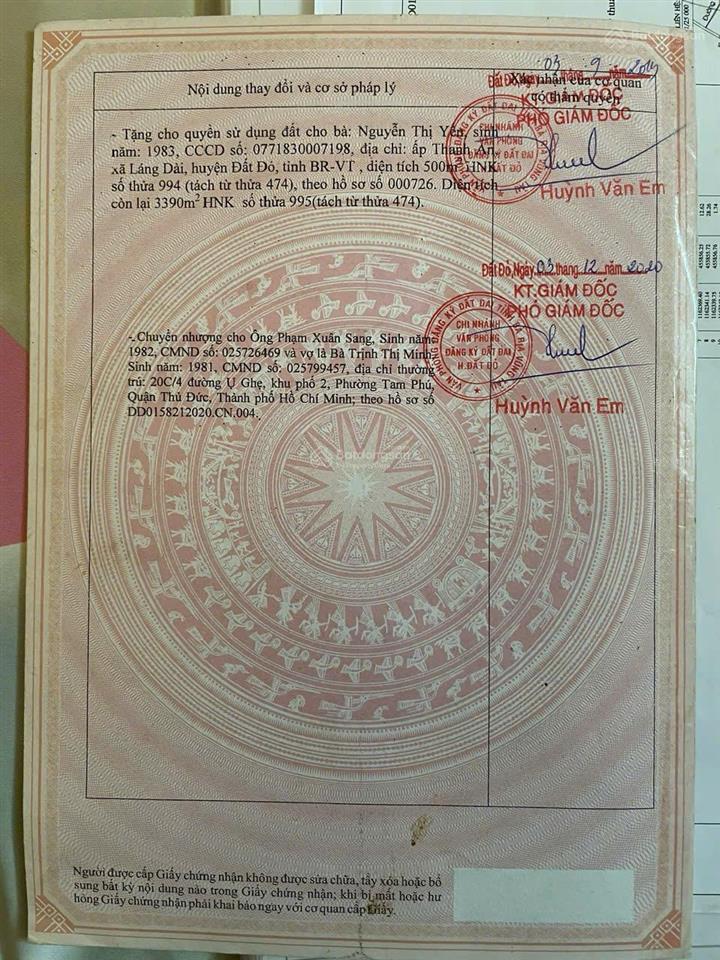 Nội dung thay đổi và cơ sở pháp lý
Xác nhận của cơ quan
có thẩm quyền
- Tặng cho quyền sử dụng đất cho bà: Nguyễn Thị Yến, sinh
năm: 1983, CCCD số: 0771830007198, địa chỉ: ấp Thanh An,
xã Láng Dài, huyện Đất Đỏ, tỉnh BR-VT , diện tích 500m² HNK
số thửa 994 (tách từ thửa 474), theo hồ sơ số 000726. Diện tích
còn lại 3390m² HNK số thửa 995(tách từ thửa 474).
Đất Đỏ, ngày 03 tháng 9 năm 2019
KT.GIÁM ĐỐC
PHÓ GIÁM ĐỐC
CHI NHÁNH
VĂN PHÒNG
ĐĂNG KÝ ĐẤT ĐAI
H.ĐẤT ĐỎ
Huỳnh Văn Em
-.Chuyển nhượng cho Ông Phạm Xuân Sang, Sinh năm
1982, CMND số: 025726469 và vợ là Bà Trịnh Thị Minh
Sinh năm: 1981, CMND số: 025799457, địa chỉ thường
trú: 20C/4 đường Ụ Ghe, khu phố 2, Phường Tam Phú,
Quận Thủ Đức, Thành phố Hồ Chí Minh; theo hồ sơ số
DD0158212020.CN.004.
Đất Đỏ, Ngày 03 tháng 12 năm 2020
KT.GIÁM ĐỐC
PHÓ GIÁM ĐỐC
VĂN PHÒNG ĐĂNG KÝ ĐẤT ĐAI TỈNH BÀ RỊA VŨNG TÀU
CHI NHÁNH
VĂN PHÒNG
ĐĂNG KÝ ĐẤT ĐAI
H.ĐẤT ĐỎ
Huỳnh Văn Em
Batdongsan
Người được cấp Giấy chứng nhận không được sửa chữa, tẩy xóa hoặc bổ
sung bất kỳ nội dung nào trong Giấy chứng nhận; khi bị mất hoặc hư
hỏng Giấy chứng nhận phải khai báo ngay với cơ quan cấp Giấy.